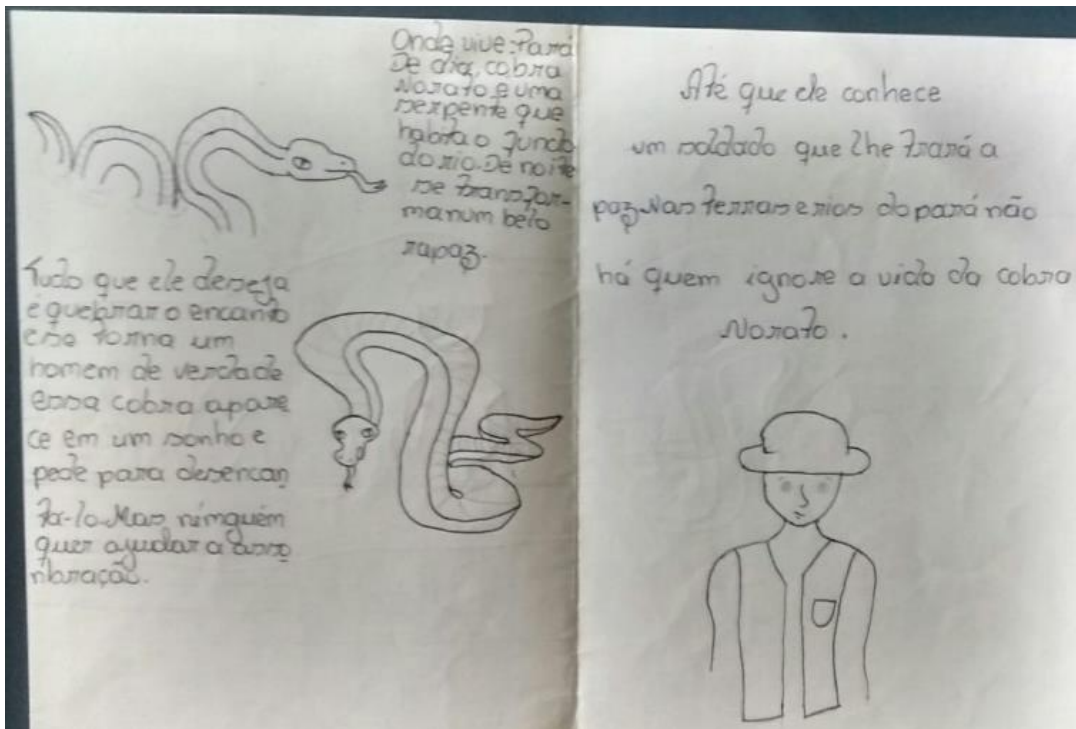 Onde vive: Pará
De dia, cobra
Norato e uma
serpente que
habita o fundo
do rio. De noite
se transfor-
ma num belo
rapaz.
Tudo que ele deseja
é quebrar o encanto
e se torna um
homem de verdade
essa cobra apare
ce em um sonho e
pede para desencan
ta-lo. Mas ninguém
quer ajudar a asso
mbração.
Até que ele conhece
um soldado que lhe trará a
paz. Nas terras e rios do pará não
há quem ignore a vida da cobra
Norato.